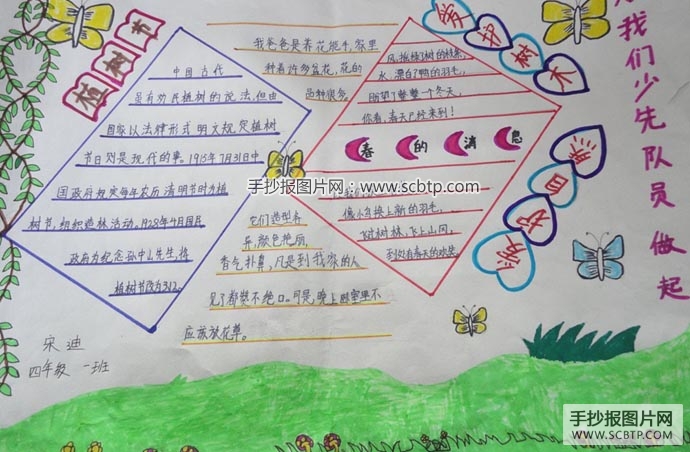 植树节
中国古代
虽有劝民植树的说法,但由
国家以法律形式明文规定植树
节日则是现代的事。1915年7月31日中
国政府规定每年农历清明节时为植
树节,组织造林活动。1928年4月国民
政府为纪念孙中山先生,将
植树节改为3.12
我爸爸是养花能手,家里
种着许多盆花,花的
品种很多
它们造型各
异,颜色艳丽,
香气扑鼻,凡是到我家的人
见了都赞不绝口。可是,晚上卧室里不
应该放花草。
风,摇绿了树的枝条,
水,漂白了鸭的羽毛,
盼望了整整一个冬天,
你看,春天已经来到!
春的消息
像小鸟换上新的羽毛,
飞过树林,飞上山冈,
到处有春天的欢笑。
爱护树木
爱护自然
我们少先队员做起
宋迪
四年级 一班
手抄报图片网:www.scbtp.com
手抄报图片网
WWW.SCBTP.COM